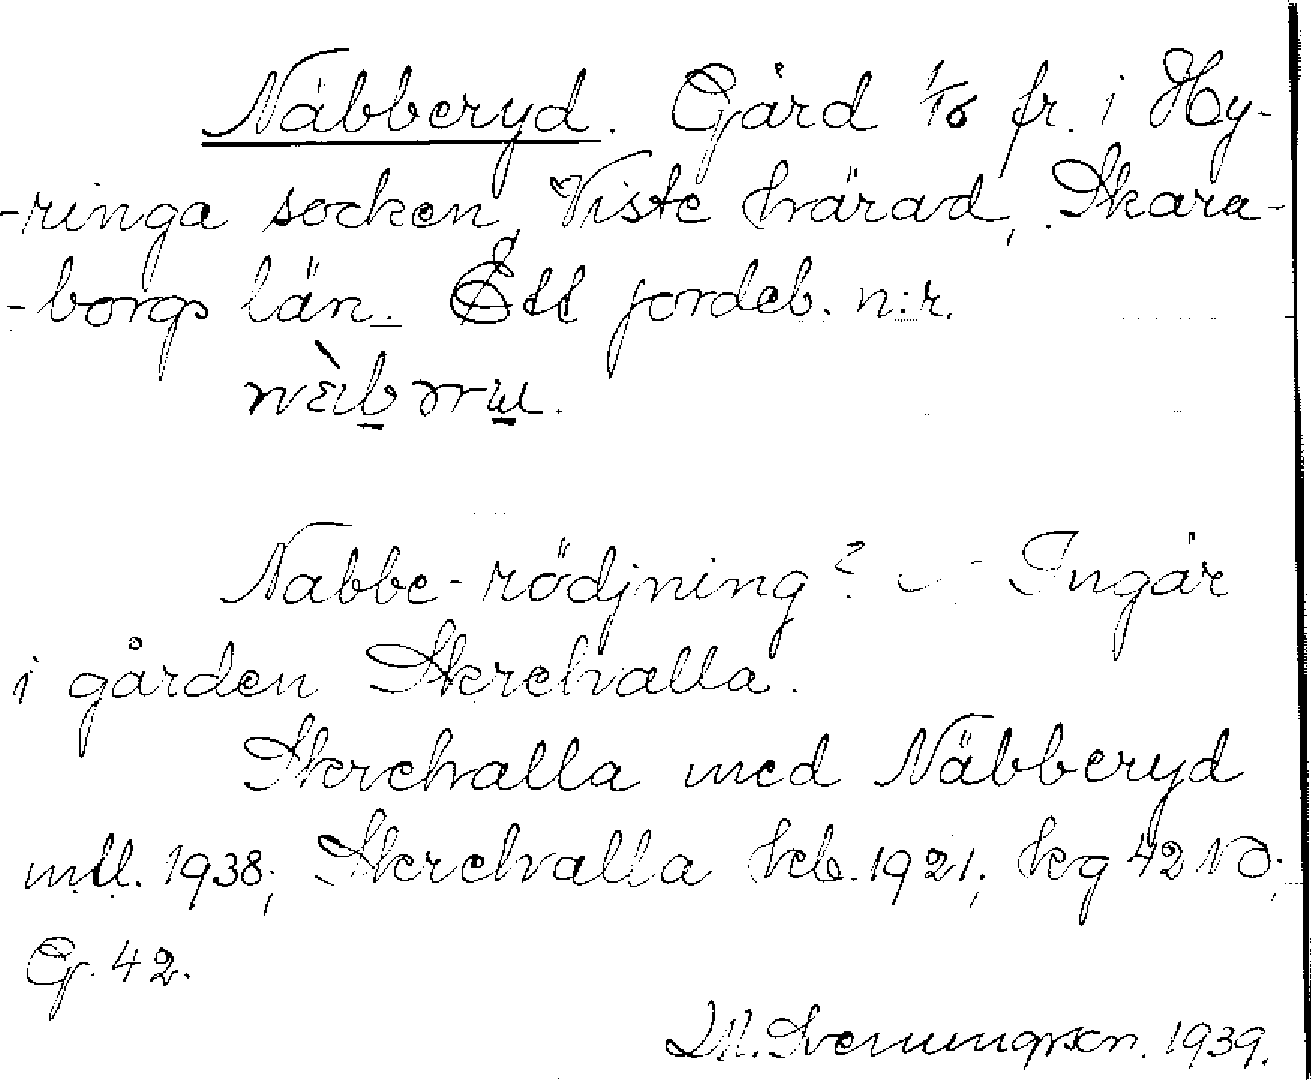 Näbberyd. Gård 1/16 fr. i Hy-
-ringa socken, Viste härad, Skara-
-borgs län. Ett jordeb. n:r.
Nabbe-rödjning? - Ingår
i gården Skrehalla.
Skrehalla med Näbberyd
mtl. 1938; Skrehalla kb. 1921; hkg 42 NO;
G. 42.
M. Svenungson. 1939.